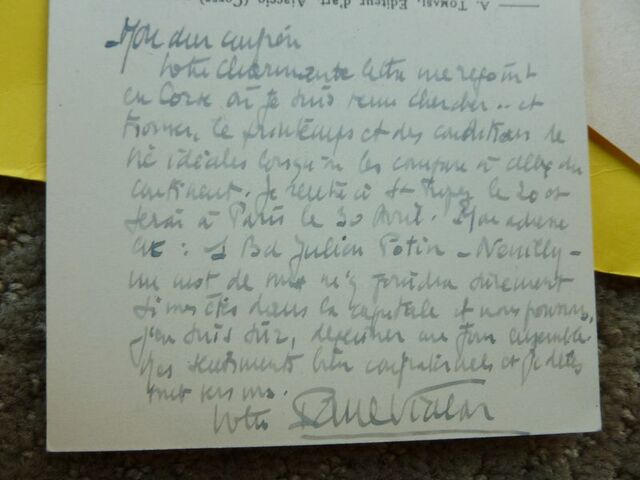 A. Tomasi, Editeur d'art, Ajaccio (Corse)
Mon cher confrère
Votre charmante lettre me rejoint
en Corse où je suis venu chercher.. et
trouver, le printemps et des conditions de
vie idéales lorsqu'on les compare à celles du
continent. Je rentre à St Tropez le 20 et
serai à Paris le 30 Avril. Mon adresse
est : 1 Bd Julien Potin - Neuilly -
un mot de vous m'y joindra sûrement
si vous êtes dans la capitale et nous pourrons,
j'en suis sûr, déjeuner un jour ensemble.
Mes sentiments bien confraternels et je
Votre Paul Vialar